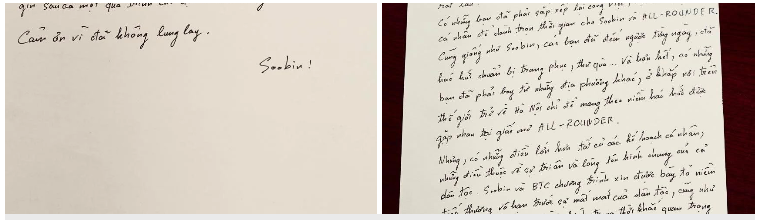 gìn sau cả một quá trình
Cảm ơn vì đã không lung lay.
Soobin!
Có những bạn đã phải sắp xếp lại công việc
cá nhân để dành trọn thời gian cho Soobin và ALL-ROUNDER.
Cũng giống như Soobin, các bạn đã đếm ngược từng ngày, đã
háo hức chuẩn bị trang phục, thư quà... Và hơn hết, có những
bạn đã phải bay từ những địa phương khác, ở khắp nơi trên
thế giới trở về Hà Nội chỉ để mang theo niềm háo hức được
gặp nhau tại giấc mơ ALL-ROUNDER.
Nhưng, có những điều lớn hơn tất cả các kế hoạch cá nhân,
những điều thuộc về sự tri ân và lòng tôn kính chung của cả
dân tộc. Soobin và BTC chương trình xin được bày tỏ niềm
tiếc thương vô hạn trước sự mất mát của nhân dân, cũng như
thời khắc quan trọng